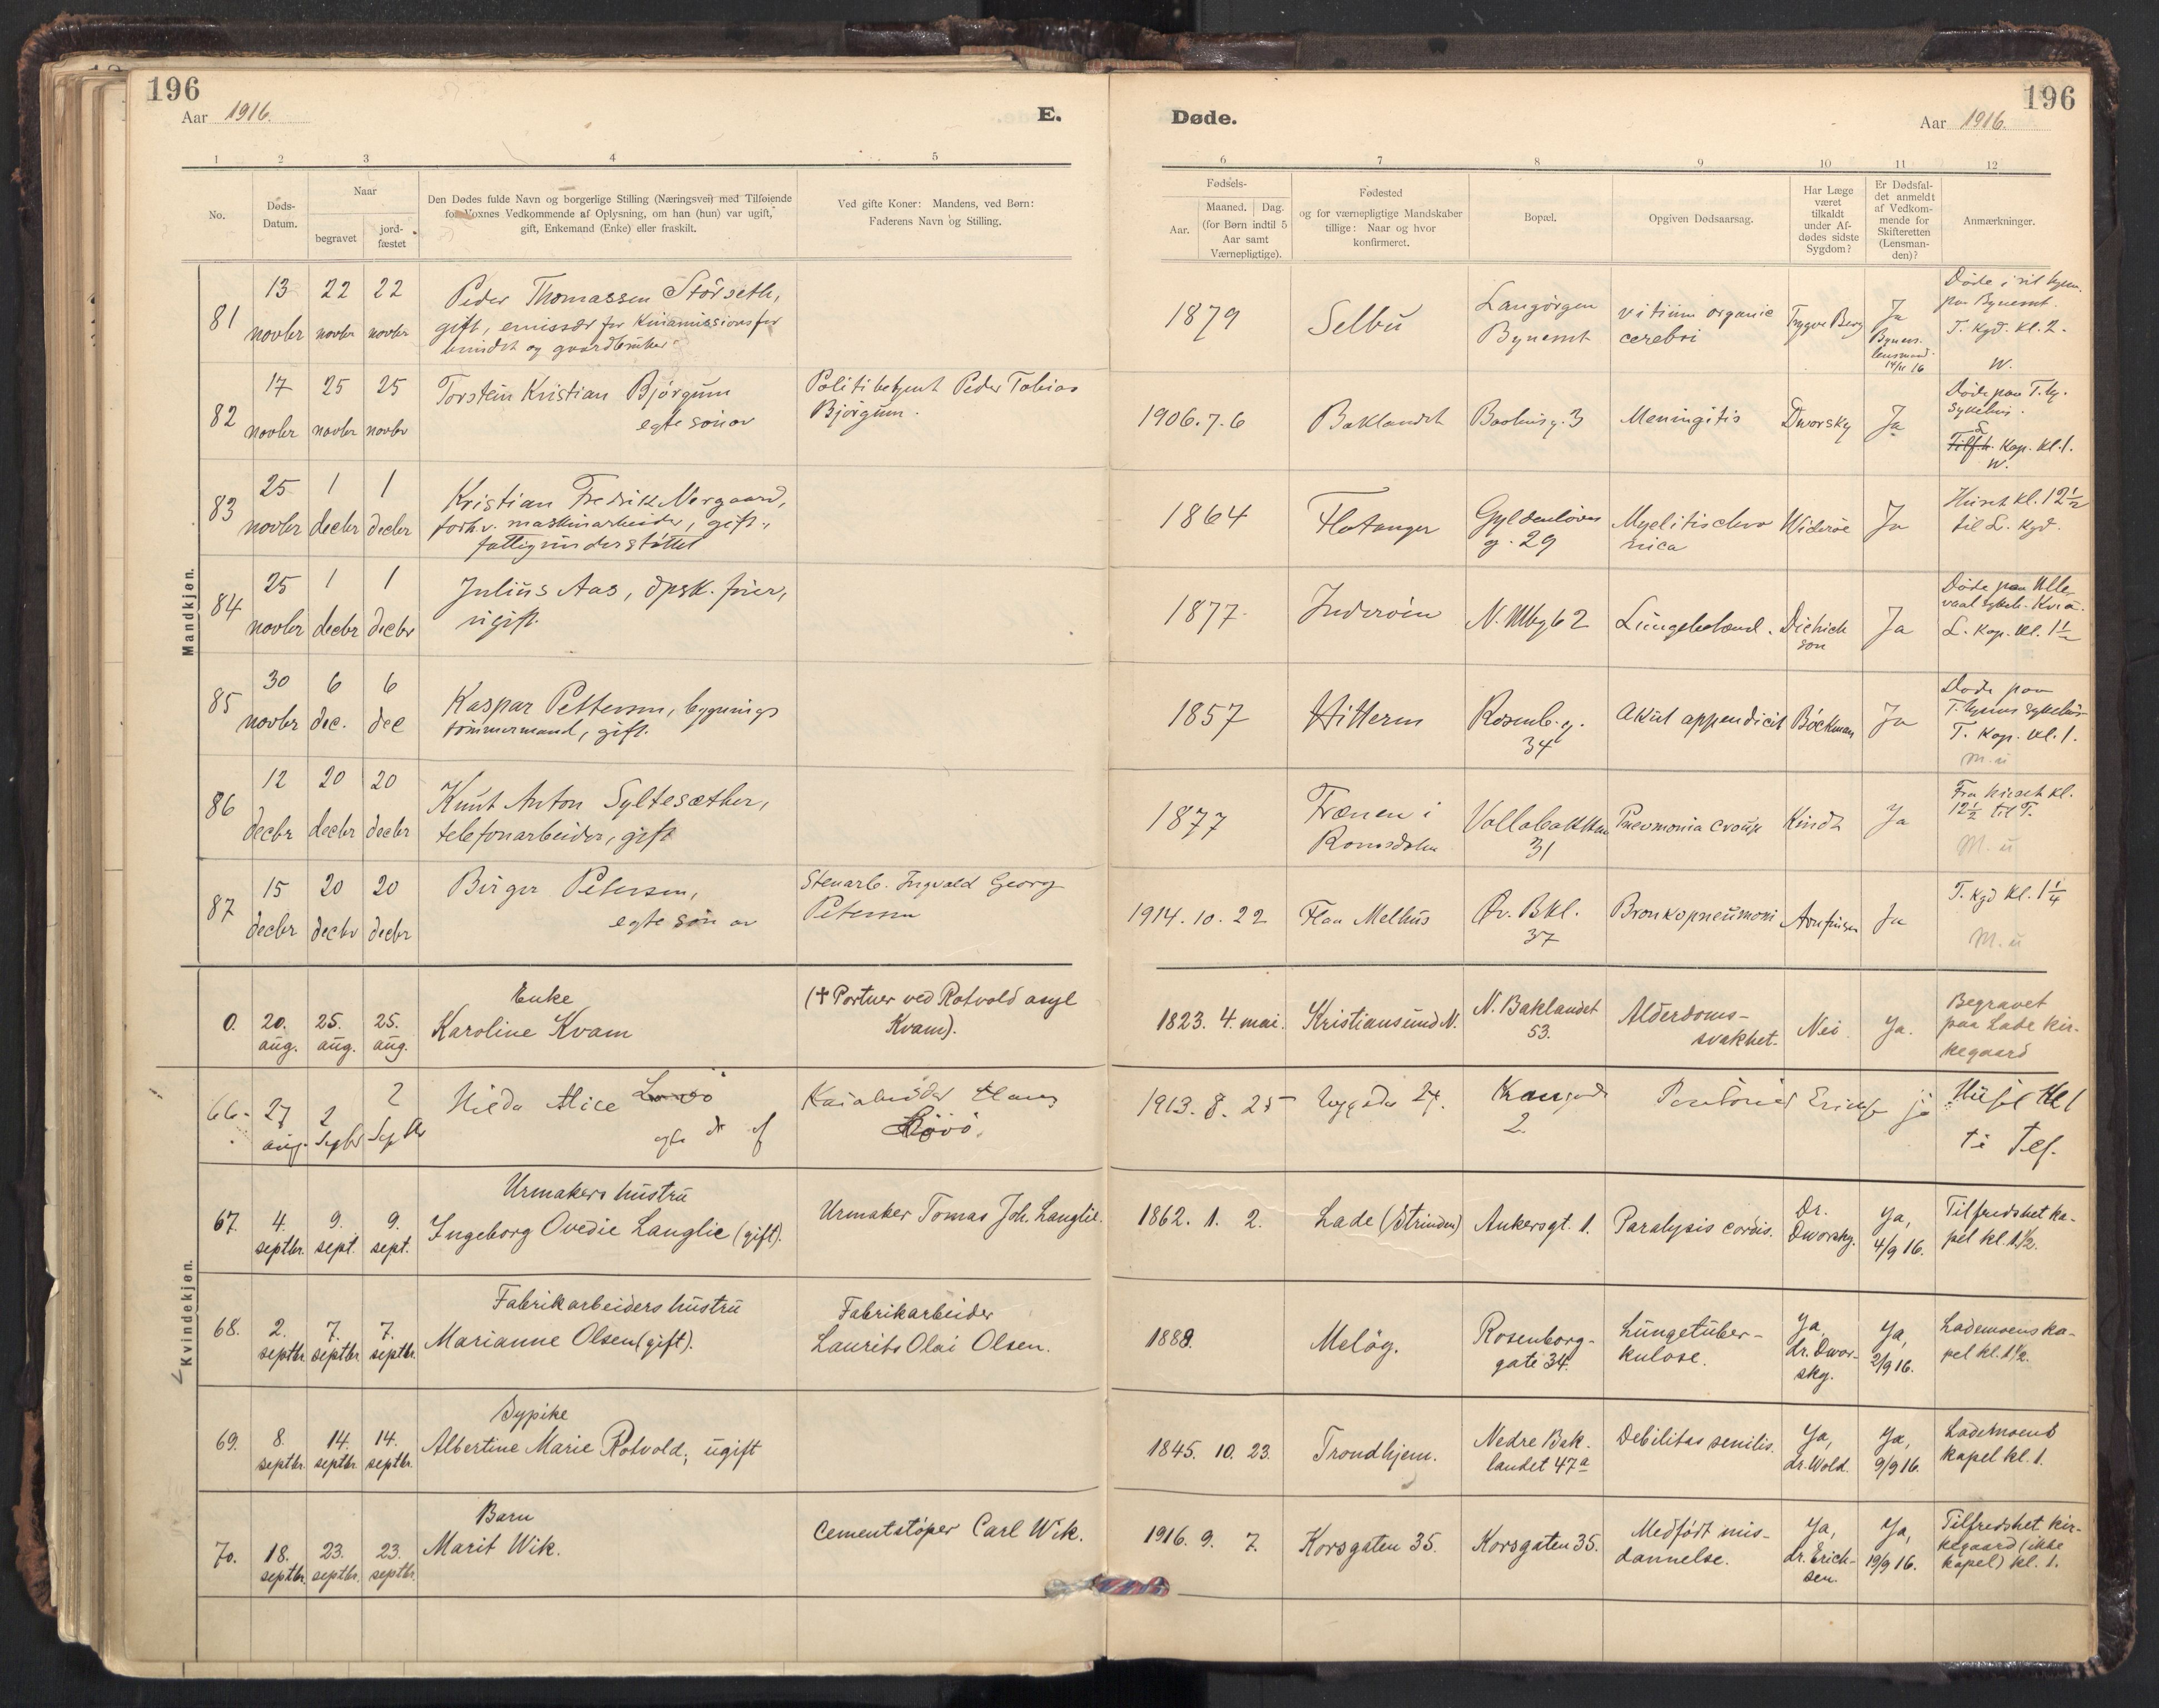 196
Aar 1916.
E.
1 2 3 4 5
No.
Døds-
Datum.
Naar
begravet
jord-
fæstet
Den Dødes fulde Navn og borgerlige Stilling (Næringsvei) med Tilføiende
for Voxnes Vedkommende af Oplysning, om han (hun) var ugift,
gift, Enkemand (Enke) eller fraskilt.
Ved gifte Koner: Mandens, ved Børn:
Faderens Navn og Stilling.
Mandkjøn.
81
13 22 22
novbr novbr novbr
Peder Thomassen Störseth,
gift, emissær for Kinamissionsfor
bundet og gaardbruker
82
17 25 25
novbr novbr novbr
Torstein Kristian Bjørgum
egte søn av
Politibetjent Peder Tobias
Bjørgum.
83
25 1 1
novbr decbr decbr
Kristian Fredrik Norgaard,
forh.v. maskinarbeider, gift,
fattigunderstøttet
84
25 1 1
novbr decbr decbr
Julius Aas, dpsk. fører,
ugift.
85
30 6 6
novbr dec. dec
Kaspar Pettersen, bygnings
tømmermand, gift.
86
12 20 20
decbr decbr decbr
Knut Anton Syltesæther,
telefonarbeider, gift
87
15 20 20
decbr decbr decbr
Birger Petersen,
egte søn av
Stenarb. Ingvald Georg
Petersen
0. 20. 25. 25.
aug. aug. aug.
Enke
Karoline Kvam
(† Portner ved Rotvold asyl
Kvam).
66. 27 2 2
aug. Septbr Septbr
Alice
Hans
Kvindekjøn.
67. 4. 9. 9.
septbr. sept. sept.
Urmakers hustru
Ingeborg Ovedie Langlie (gift).
Urmaker Tomas Joh. Langlie.
68. 2. 7. 7.
septbr. septbr. septbr.
Fabrikarbeiders hustru
Marianne Olsen (gift).
Fabrikarbeider
Laurits Olai Olsen.
69. 8. 14. 14.
septbr. septbr. septbr.
Sypike
Albertine Marie Rotvold, ugift
70. 18. 23. 23.
septbr. septbr. septbr.
Barn
Marit Wik.
Cementstøper Carl Wik.
Døde.
Aar 1916.
196
6 7 8 9 10 11 12
Fødsels-
Aar.
Maaned. Dag.
(for Børn indtil 5
Aar samt
Værnepligtige).
Fødested
og for værnepligtige Mandskaber
tillige: Naar og hvor
konfirmeret.
Bopæl.
Opgiven Dødsaarsag.
Har Læge
været
tilkaldt
under Af-
dødes sidste
Sygdom?
Er Dødsfal-
det anmeldt
af Vedkom-
mende for
Skifteretten
(Lensman-
den)?
Anmærkninger.
1879
Selbu
Langørgen
Bynesset
vitium organic
cerebri
Trygve Berg
Ja
Bynes.
lensmand
14/11 16
Døde i sit hjem
paa Bynesset.
T. Kgd. kl. 2.
W.
1906. 7. 6
Baklandet
Baahusg. 3
Meningitis
Dworsky
Ja
Døde paa T.hj.
sykehus.
L. Kap. kl. 1.
W.
1864
Flatanger
Gyldenløves
g. 29
Myelitis chro
nica
Widerøe
Ja
Huset kl. 12 1/2
til L. Kgd.
1877
Inderøen
N. Mbg 62
Lungebetænd.
Dietrich
son
Ja
Døde paa Ulle
vaal sykeh. Kr.a.
L. Kap. kl. 1 1/2
1857
Hitteren
Rosenb. g.
34
Akut appendicit
Böckman
Ja
Døde paa
T.hjems sykehus
T. Kap. kl. 1.
M. u
1877
Frænen i
Romsdalen
Vollabakken
31
Pneumonia croup
Kindt
Ja
Fra huset kl.
12 1/2 til T.
M. u
1914. 10. 22
Flaa Melhus
Øv. Bkl.
37
Bronkopneumoni
Arnfinsen
Ja
T. Kgd kl. 1 1/4
M. u
1823. 4. mai.
Kristiansund N.
N. Baklandet
53.
Alderdoms-
svakhet.
Nei.
Ja.
Begravet
paa Lade kir-
kegaard
1913. 8. 25
2.
ja
Huset Kl 1
ti Tlf.
1862. 1. 2.
Lade (Strinden)
Ankersgt. 1.
Paralysis cordis.
Dr.
Dworsky.
Ja,
4/9 16.
Tilfredshet ka-
pel kl. 1 1/2.
1888.
Meløy.
Rosenborg-
gate 34.
Lungetuber-
kulose.
Ja
dr. Dwor-
sky.
Ja,
2/9 16.
Lademoens ka-
pel kl. 1 1/2.
1845. 10. 23.
Trondhjem.
Nedre Bak.
landet 47a
Debilitas senilis.
Ja,
dr. Wold.
Ja,
9/9 16.
Lademoens
kapel kl. 1.
1916. 9. 7.
Korsgaten 35.
Korsgaten 35.
Medfødt mis-
dannelse.
Ja,
dr. Erich-
sen.
Ja,
19/9 16.
Tilfredshet kir-
kegaard (ikke
kapel) kl. 1.